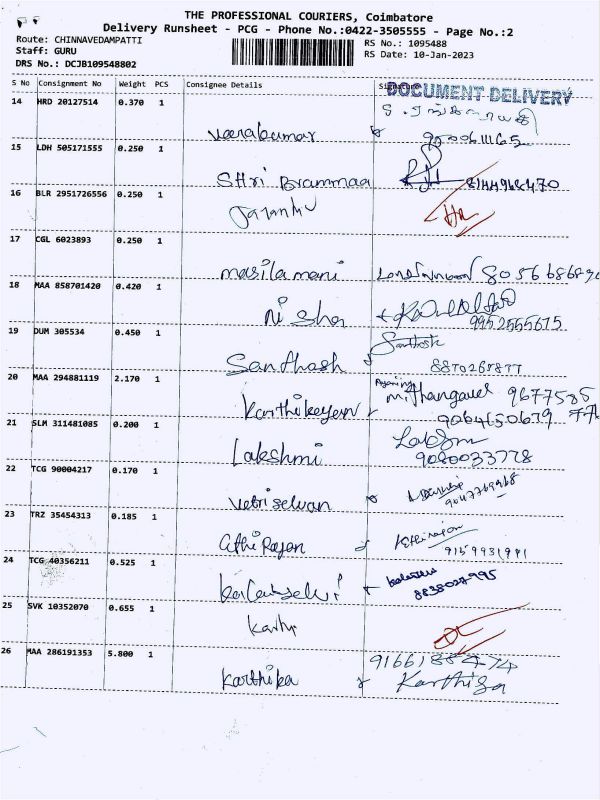 THE PROFESSIONAL COURIERS, Coimbatore
Delivery Runsheet - PCG - Phone No.:0422-3505555 - Page No.:2
Route: CHINNAVEDAMPATTI
RS No.: 1095488
Staff: GURU
RS Date: 10-Jan-2023
DRS No.: DCJB109548802
S No Consignment No Weight PCS Consignee Details Signature
DOCUMENT DELIVERY
14 HRD 20127514 0.370 1
Veerakumar
15 LDH 505171555 0.250 1
Shri Brammaa 8144968470
16 BLR 2951726556 0.250 1
17 CGL 6023893 0.250 1
masilamani 8056686890
18 MAA 858701420 0.420 1
Nisha
9952555675
19 DUM 305534 0.450 1
Santhosh
Santhosh
8870267877
20 MAA 294881119 2.170 1
M.Thangavel 9677585
Karthikeyan
9064650679
21 SLM 311481085 0.200 1
Lakshmi
9080033778
22 TCG 90004217 0.170 1
Vetriselvan
9047769968
23 TRZ 35454313 0.185 1
Athi Rajan
9159931991
24 TCG 40356211 0.525 1
Kalaiselvi
8838027995
25 SVK 10352070 0.655 1
26 MAA 286191353 5.800 1
9166188474
Karthika Karthiga